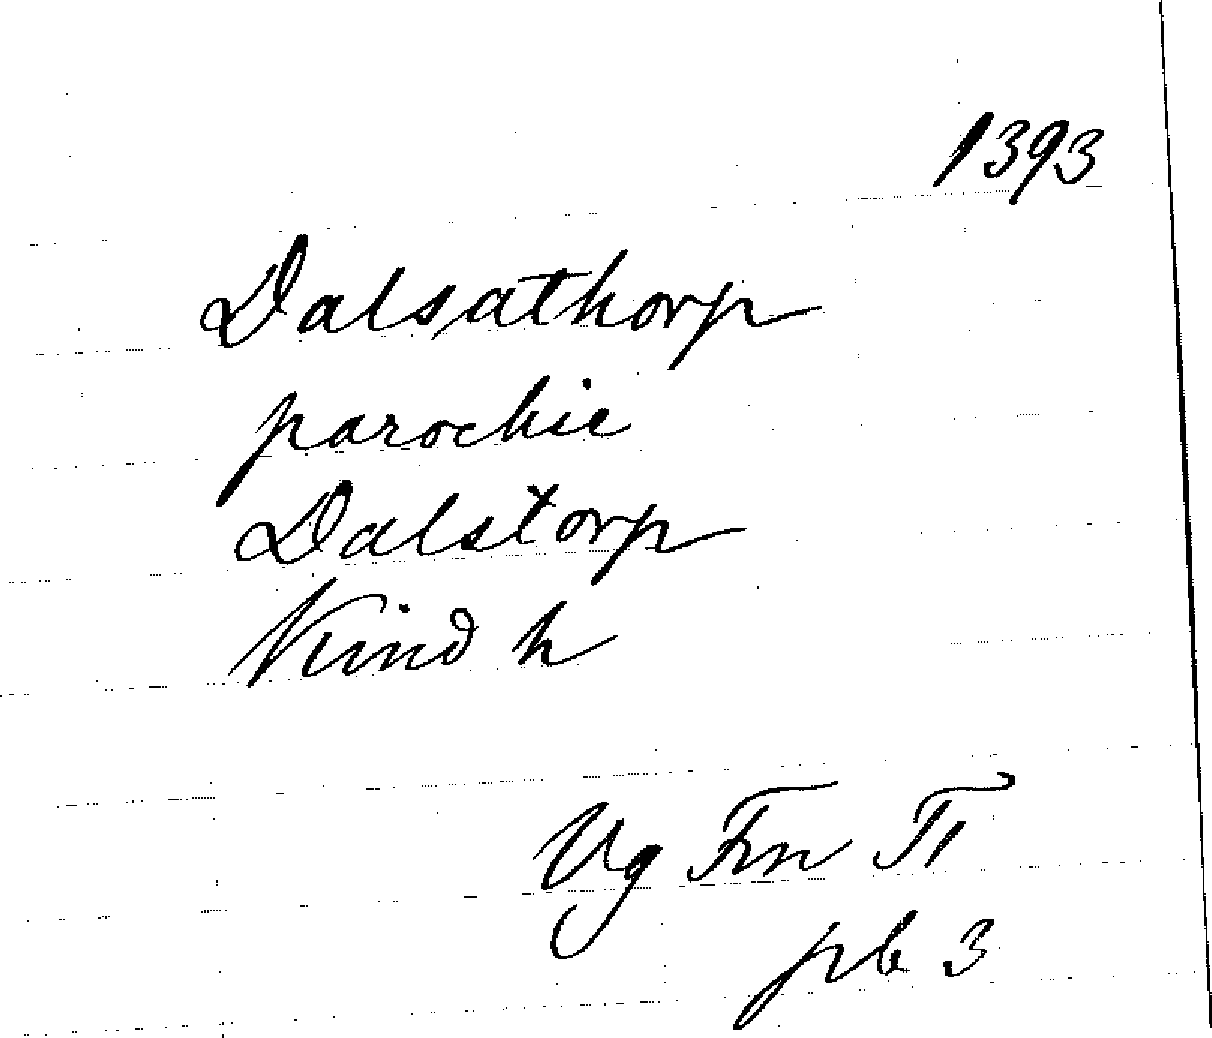 1393
Dalsathorp
parochie
Dalstorp
Kind h
Vg Frn Ti
pb 3